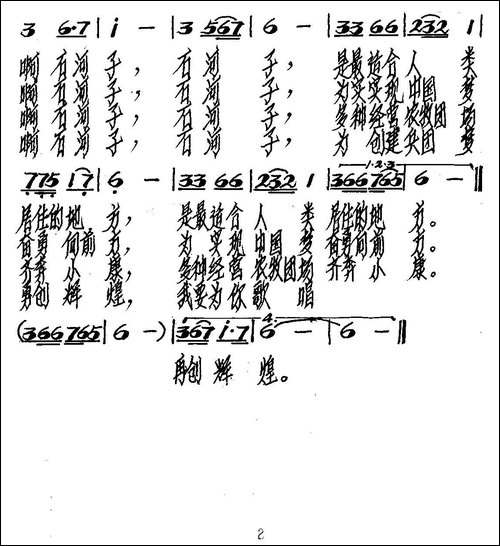 3 6·7 | i — | 3 567 | 6 — | 33 66 | 232 1 |
啊 石河 子， 石河 子， 是最适合 人 类
啊 石河 子， 石河 子， 为实现 中国 梦
啊 石河 子， 石河 子， 多种经营 农牧团 场
啊 石河 子， 石河 子， 为 创建 兵团 梦
775 i7 | 6 — | 33 66 | 232 1 | 366 765 | 6 — ‖
1·2·3
居住的地 方， 是最适合 人 类 居住的地 方。
奋勇 向前 方， 为 实现 中国 梦 奋勇向前 方。
齐奔 小 康， 多种经营 农牧团场 齐奔 小 康。
勇创 辉 煌， 我要为你 歌 唱
(366 765 | 6 — ) | 367 i·7 | 6 — | 6 — ‖
4.
再创 辉 煌。
2